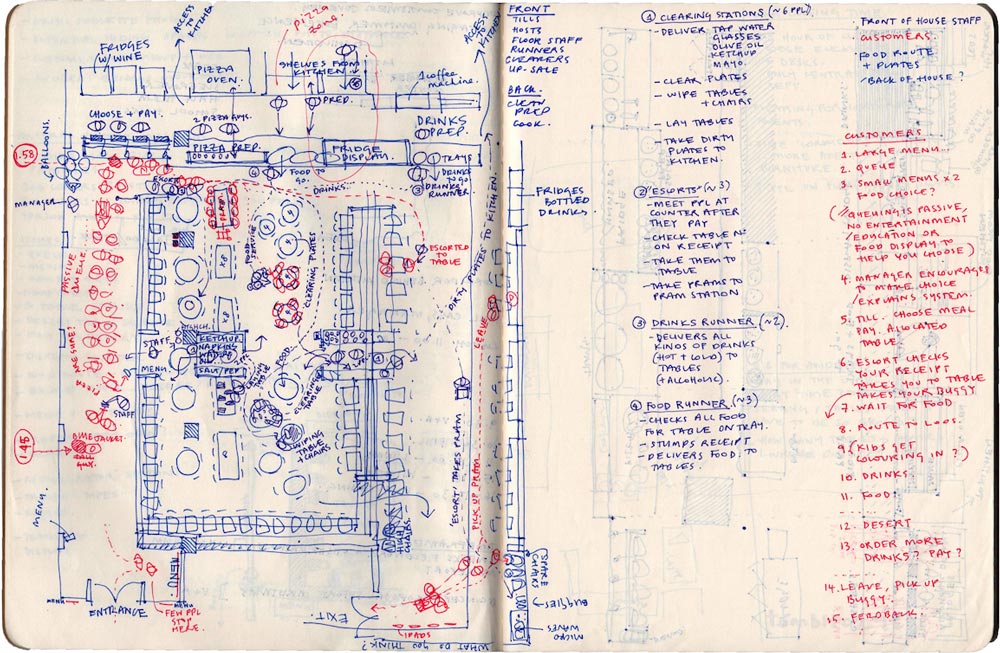 ACCESS TO KITCHEN
pizza zone
ACCESS TO KITCHEN
FRIDGES
W/WINE
PIZZA
OVEN.
SHELVES FROM
KITCHEN
coffee
machine
PREP.
CHOOSE + PAY.
2 PIZZA GUYS.
DRINKS
PREP.
BALLOONS.
1.58
PIZZA PREP.
FRIDGE
DISPLAY.
TRAYS
DRINKS
TO GO
DRINKS
RUNNER
ESCORT
FOOD
GO.
DRINKS.
MANAGER
PASSIVE
QUEUE.
CLEARING PLATES
ESCORTED
TO TABLE
DIRTY PLATES TO KITCHEN.
LEAVE
STAFF
MENU
KETCHUP
NAPKINS
WATER
SALT/PEP
FOOD.
STAFF
1.45
BLUE JACKET
WIPING
TABLE
+ CHAIRS
'ESCORT' TAKES PRAM
PICK UP PRAM
HIGH
CHAIRS.
MENU.
MENU
ENTRANCE
MENU
MENU
FEW PPL
STOP
HERE.
EXIT.
WHAT DO YOU THINK?
FRONT
TILLS
HOSTS
FLOOR STAFF
RUNNERS
CLEARERS
UP-SALE
BACK.
CLEAN
PREP
COOK.
FRIDGES
BOTTLED
DRINKS.
SPARE
CHAIRS
BUGGIES
MICRO
WAVES
① CLEARING STATIONS (~6 PPL)
- DELIVER TAP WATER
GLASSES
OLIVE OIL
KETCHUP
MAYO.
- CLEAR PLATES
- WIPE TABLES
+ CHAIRS
- LAY TABLES
- TAKE DIRTY
PLATES TO
KITCHEN.
② 'ESCORTS' (~3)
- MEET PPL AT
COUNTER AFTER
THEY PAY
- CHECK TABLE Nº
ON RECEIPT
- TAKE THEM TO
TABLE
- TAKE PRAMS TO
PRAM STATION
③ DRINKS RUNNER (~2).
- DELIVERS ALL
KINDS OF DRINKS
(HOT + COLD) TO
TABLES
(+ ALCOHOLIC).
④ FOOD RUNNER (~3)
- CHECKS ALL FOOD
FOR TABLE ON TRAY.
- STUMPS RECEIPT
- DELIVERS FOOD. TO
TABLES.
· FRONT OF HOUSE STAFF
· CUSTOMERS.
· FOOD ROUTE
+ PLATES
/ BACK OF HOUSE?
CUSTOMERS
1. LARGE MENU...
2. QUEUE
3. SMALL MENUS x 2
FOOD CHOICE?
(/QUEUING IS PASSIVE,
NO ENTERTAINMENT
/EDUCATION OR
FOOD DISPLAY TO
HELP YOU CHOOSE)
4. MANAGER ENCOURAGES
TO MAKE CHOICE
/EXPLAINS SYSTEM.
5. TILL. CHOOSE MEAL
PAY. ALLOCATED
TABLE.
6. ESCORT CHECKS
YOUR RECEIPT
TAKES YOU TO TABLE
TAKES YOUR BUGGY
7. WAIT FOR FOOD
8. ROUTE TO LOOS.
9. (KIDS GET
COLOURING IN?)
10. DRINKS.
11. FOOD.
12. DESERT
13. ORDER MORE
DRINKS? PAY?
14. LEAVE, PICK UP
BUGGY.
15. FEEDBACK